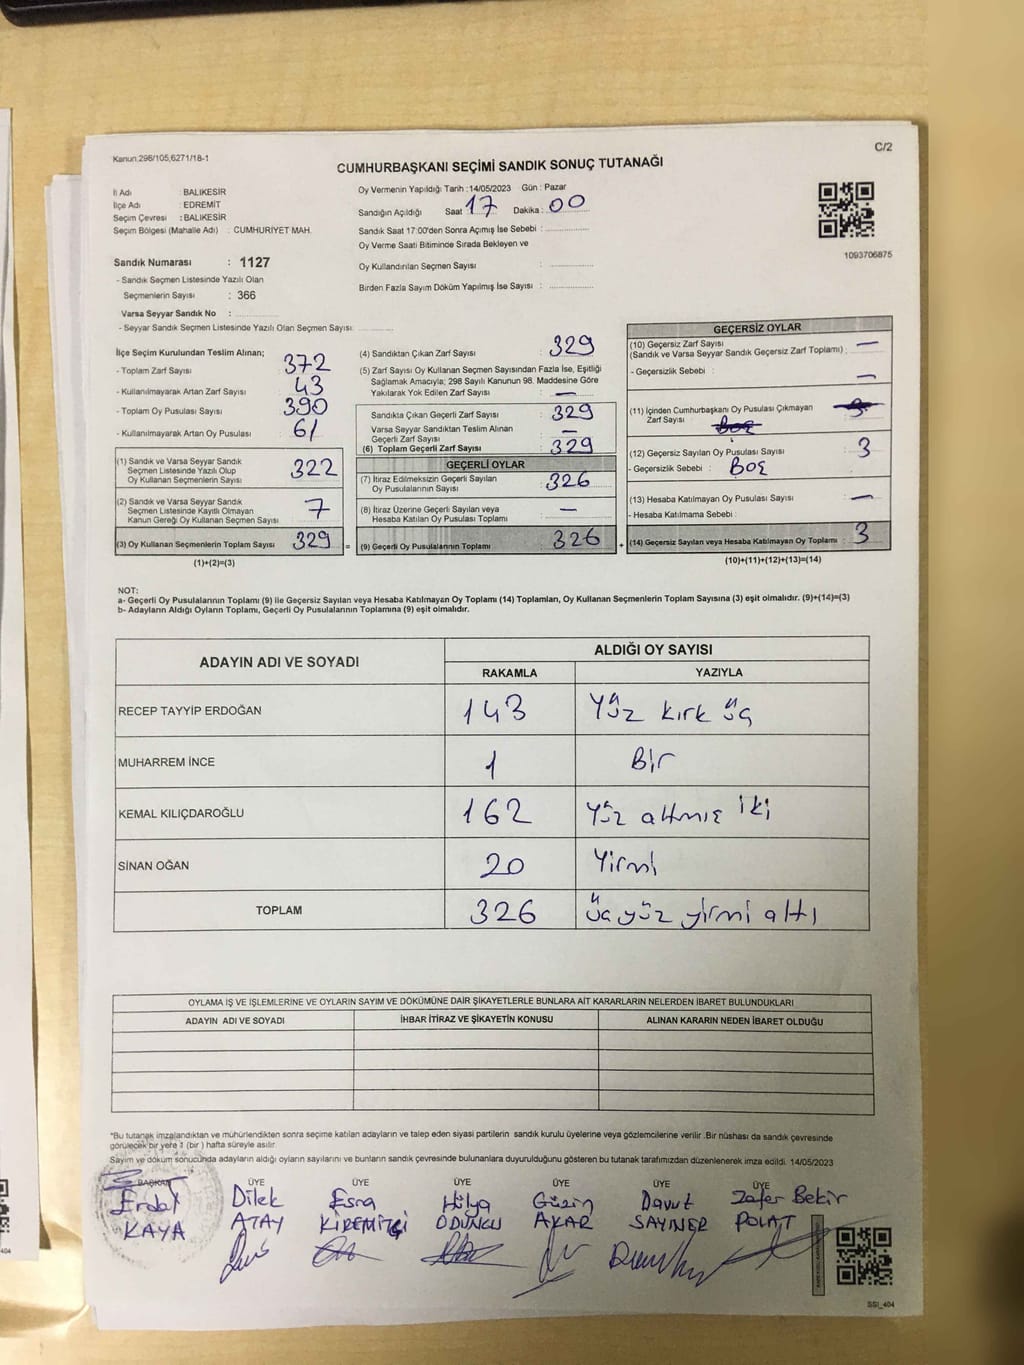 Kanun.298/105,6271/18-1
C/2
CUMHURBAŞKANI SEÇİMİ SANDIK SONUÇ TUTANAĞI
İl Adı : BALIKESİR
İlçe Adı : EDREMİT
Seçim Çevresi : BALIKESİR
Seçim Bölgesi (Mahalle Adı) : CUMHURİYET MAH.
Oy Vermenin Yapıldığı Tarih :14/05/2023 Gün : Pazar
Sandığın Açıldığı Saat 17 Dakika : 00
Sandık Saat 17:00'den Sonra Açımış İse Sebebi :
Oy Verme Saati Bitiminde Sırada Bekleyen ve
Oy Kullandırılan Seçmen Sayısı :
Birden Fazla Sayım Döküm Yapılmış İse Sayısı :
1093706875
Sandık Numarası : 1127
- Sandık Seçmen Listesinde Yazılı Olan
Seçmenlerin Sayısı : 366
Varsa Seyyar Sandık No :
- Seyyar Sandık Seçmen Listesinde Yazılı Olan Seçmen Sayısı:
İlçe Seçim Kurulundan Teslim Alınan;
- Toplam Zarf Sayısı : 372
- Kullanılmayarak Artan Zarf Sayısı : 43
- Toplam Oy Pusulası Sayısı : 390
- Kullanılmayarak Artan Oy Pusulası : 61
(1) Sandık ve Varsa Seyyar Sandık
Seçmen Listesinde Yazılı Olup
Oy Kullanan Seçmenlerin Sayısı : 322
(2) Sandık ve Varsa Seyyar Sandık
Seçmen Listesinde Kayıtlı Olmayan
Kanun Gereği Oy Kullanan Seçmen Sayısı : 7
(3) Oy Kullanan Seçmenlerin Toplam Sayısı : 329 =
(1)+(2)=(3)
(4) Sandıktan Çıkan Zarf Sayısı : 329
(5) Zarf Sayısı Oy Kullanan Seçmen Sayısından Fazla İse, Eşitliği
Sağlamak Amacıyla; 298 Sayılı Kanunun 98. Maddesine Göre
Yakılarak Yok Edilen Zarf Sayısı : —
Sandıkta Çıkan Geçerli Zarf Sayısı : 329
Varsa Seyyar Sandıktan Teslim Alınan
Geçerli Zarf Sayısı : —
(6) Toplam Geçerli Zarf Sayısı : 329
GEÇERLİ OYLAR
(7) İtiraz Edilmeksizin Geçerli Sayılan
Oy Pusulalarının Sayısı : 326
(8) İtiraz Üzerine Geçerli Sayılan veya
Hesaba Katılan Oy Pusulası Toplamı : —
(9) Geçerli Oy Pusulalarının Toplamı : 326 +
GEÇERSİZ OYLAR
(10) Geçersiz Zarf Sayısı
(Sandık ve Varsa Seyyar Sandık Geçersiz Zarf Toplamı) : —
- Geçersizlik Sebebi : —
(11) İçinden Cumhurbaşkanı Oy Pusulası Çıkmayan
Zarf Sayısı :
(12) Geçersiz Sayılan Oy Pusulası Sayısı : 3
- Geçersizlik Sebebi : Boş
(13) Hesaba Katılmayan Oy Pusulası Sayısı : —
- Hesaba Katılmama Sebebi :
(14) Geçersiz Sayılan veya Hesaba Katılmayan Oy Toplamı : 3
(10)+(11)+(12)+(13)=(14)
NOT:
a- Geçerli Oy Pusulalarının Toplamı (9) ile Geçersiz Sayılan veya Hesaba Katılmayan Oy Toplamı (14) Toplamları, Oy Kullanan Seçmenlerin Toplam Sayısına (3) eşit olmalıdır. (9)+(14)=(3)
b- Adayların Aldığı Oyların Toplamı, Geçerli Oy Pusulalarının Toplamına (9) eşit olmalıdır.
ADAYIN ADI VE SOYADI ALDIĞI OY SAYISI
RAKAMLA YAZIYLA
RECEP TAYYİP ERDOĞAN 143 Yüz kırk üç
MUHARREM İNCE 1 Bir
KEMAL KILIÇDAROĞLU 162 Yüz altmış iki
SİNAN OĞAN 20 Yirmi
TOPLAM 326 üçyüz yirmi altı
OYLAMA İŞ VE İŞLEMLERİNE VE OYLARIN SAYIM VE DÖKÜMÜNE DAİR ŞİKAYETLERLE BUNLARA AİT KARARLARIN NELERDEN İBARET BULUNDUKLARI
ADAYIN ADI VE SOYADI İHBAR İTİRAZ VE ŞİKAYETİN KONUSU ALINAN KARARIN NEDEN İBARET OLDUĞU
"Bu tutanak imzalandıktan ve mühürlendikten sonra seçime katılan adayların ve talep eden siyasi partilerin sandık kurulu üyelerine veya gözlemcilerine verilir .Bir nüshası da sandık çevresinde
görülecek bir yere 1 (bir ) hafta süreyle asılır.
Sayım ve döküm sonucunda adayların aldığı oyların sayılarını ve bunların sandık çevresinde bulunanlara duyurulduğunu gösteren bu tutanak tarafımızdan düzenlenerek imza edildi. 14/05/2023
BAŞKAN ÜYE ÜYE ÜYE ÜYE ÜYE ÜYE
Erdal Dilek Esra Hülya Güzin Davut Zafer Bekir
KAYA ATAY KİREMİTÇİ ODUNCU AKAR SAYINER POLAT
SSI_404